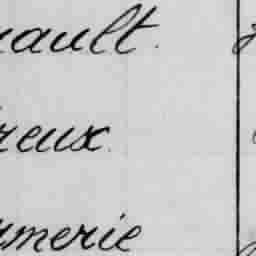 nault.
reux
rmerie